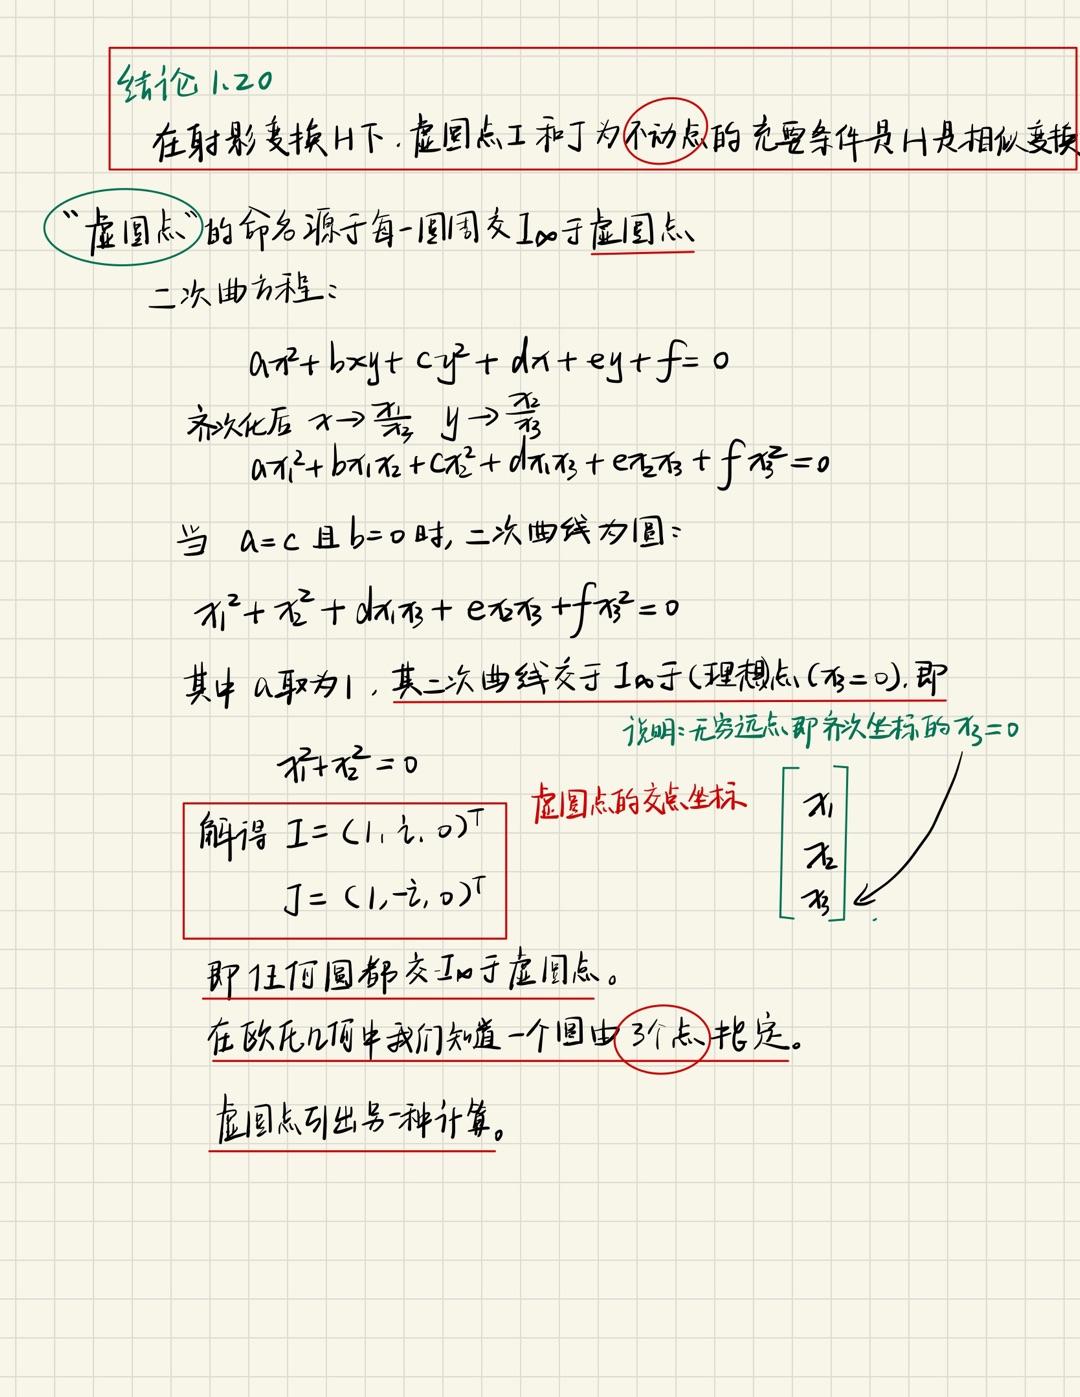 结论 1.20
在射影变换H下.虚圆点I和J为不动点的充要条件是H是相似变换
“虚圆点”的命名源于每一圆周交I∞于虚圆点
二次曲方程:
ax²+bxy+cy²+dx+ey+f=0
齐次化后 x→x₁/x₃ y→x₂/x₃
ax₁²+bx₁x₂+cx₂²+dx₁x₃+ex₂x₃+fx₃²=0
当 a=c 且 b=0 时, 二次曲线为圆:
x₁²+x₂²+dx₁x₃+ex₂x₃+fx₃²=0
其中 a取为1, 其二次曲线交于I∞于(理想)点(x₃=0).即
说明:无穷远点即齐次坐标的x₃=0
x₁²+x₂²=0
虚圆点的交点坐标
解得 I=(1,i,0)ᵀ
J=(1,-i,0)ᵀ
x₁
x₂
x₃
即任何圆都交I∞于虚圆点。
在欧氏几何中我们知道一个圆由3个点指定。
虚圆点引出另一种计算。